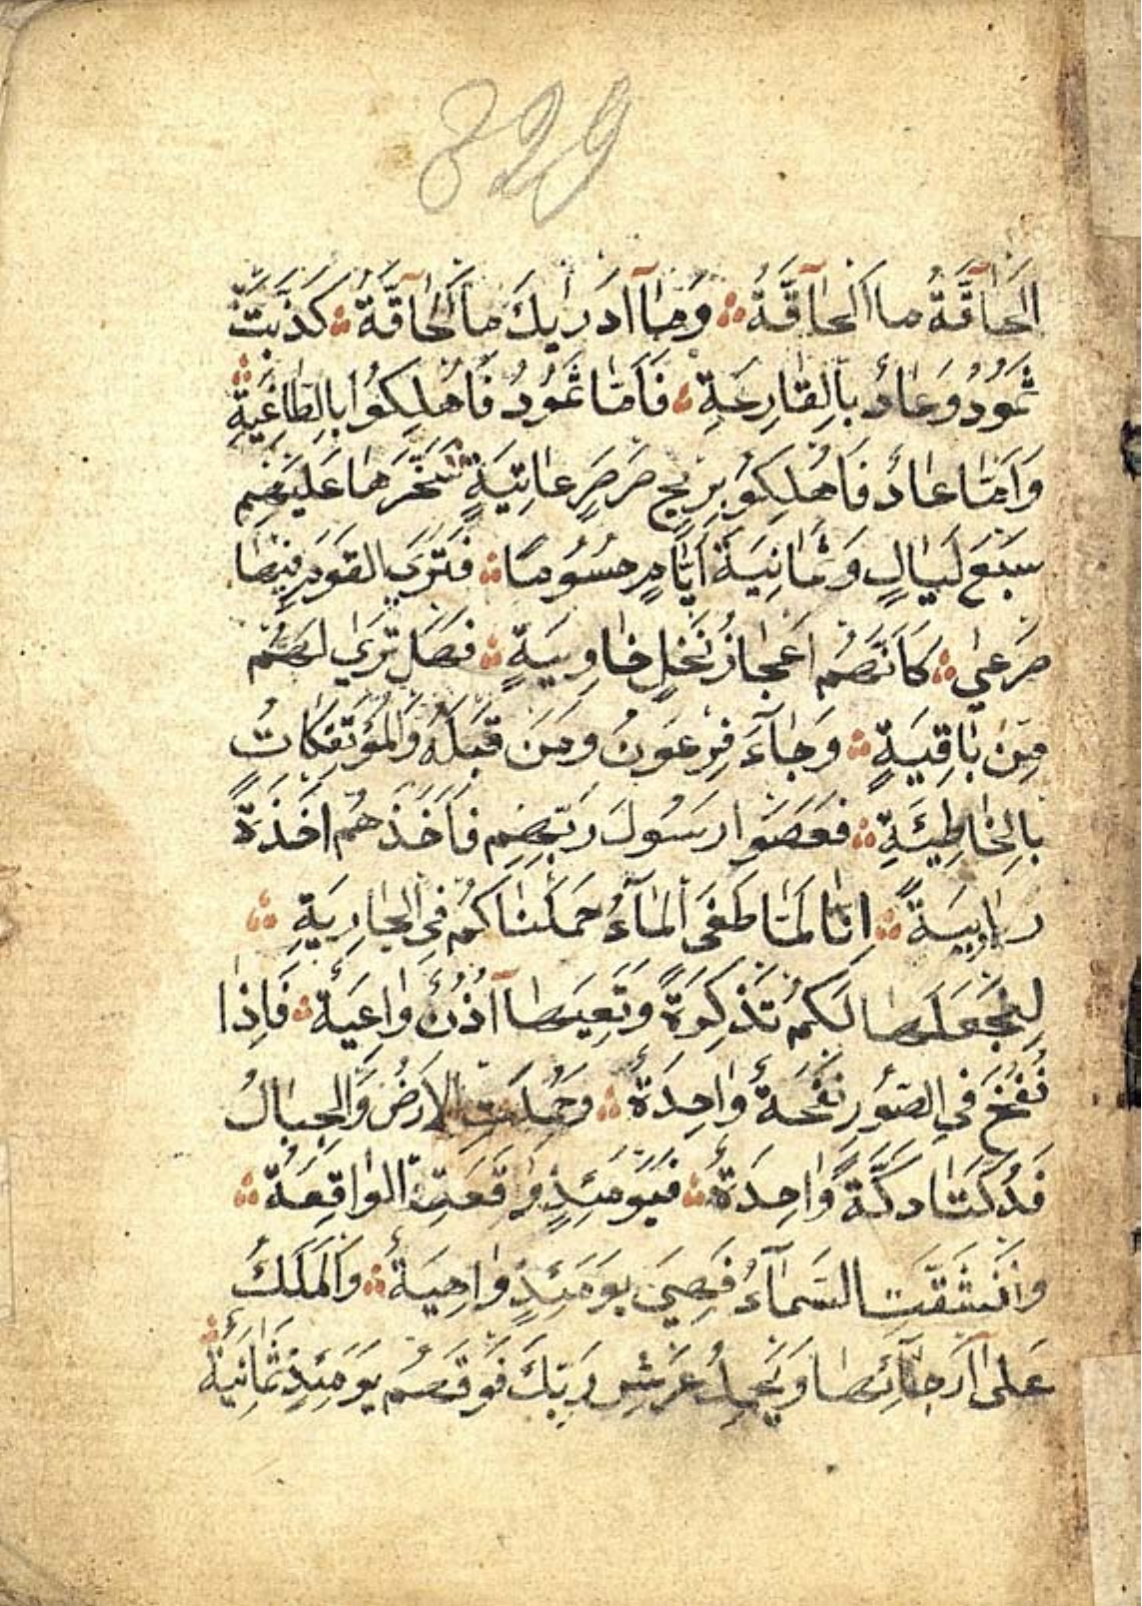 829
اَلْحَاقَّةُ مَا الْحَاقَّةُ ۞ وَمَا اَدْرٰيكَ مَا الْحَاقَّةُ ۞ كَذَّبَتْ
ثَمُودُ وَعَادٌ بِالْقَارِعَةِ ۞ فَاَمَّا ثَمُودُ فَاُهْلِكُوا بِالطَّاغِيَةِ ۞
وَاَمَّا عَادٌ فَاُهْلِكُوا بِرِيحٍ صَرْصَرٍ عَاتِيَةٍ ۞ سَخَّرَهَا عَلَيْهِمْ
سَبْعَ لَيَالٍ وَثَمَانِيَةَ اَيَّامٍ حُسُومًا ۞ فَتَرَى الْقَوْمَ فِيهَا
صَرْعٰى ۞ كَاَنَّهُمْ اَعْجَازُ نَخْلٍ خَاوِيَةٍ ۞ فَهَلْ تَرٰى لَهُمْ
مِنْ بَاقِيَةٍ ۞ وَجَآءَ فِرْعَوْنُ وَمَنْ قَبْلَهُ وَالْمُؤْتَفِكَاتُ
بِالْخَاطِئَةِ ۞ فَعَصَوْا رَسُولَ رَبِّهِمْ فَاَخَذَهُمْ اَخْذَةً
رَابِيَةً ۞ اِنَّا لَمَّا طَغَى الْمَآءُ حَمَلْنَاكُمْ فِي الْجَارِيَةِ ۞
لِنَجْعَلَهَا لَكُمْ تَذْكِرَةً وَتَعِيَهَا اُذُنٌ وَاعِيَةٌ ۞ فَاِذَا
نُفِخَ فِي الصُّورِ نَفْخَةٌ وَاحِدَةٌ ۞ وَحُمِلَتِ الْاَرْضُ وَالْجِبَالُ
فَدُكَّتَا دَكَّةً وَاحِدَةً ۞ فَيَوْمَئِذٍ وَقَعَتِ الْوَاقِعَةُ ۞
وَانْشَقَّتِ السَّمَآءُ فَهِيَ يَوْمَئِذٍ وَاهِيَةٌ ۞ وَالْمَلَكُ
عَلٰى اَرْجَآئِهَا وَيَحْمِلُ عَرْشَ رَبِّكَ فَوْقَهُمْ يَوْمَئِذٍ ثَمَانِيَةٌ ۞